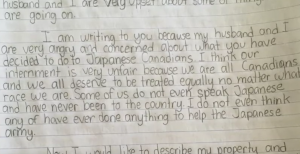 husband and I are very upset about some of
are going on.
I am writing to you because my husband and I
are very angry and concerned about what you have
decided to do to Japanese Canadians. I think our
internment is very unfair because we are all Canadians
and we all deserve to be treated equally no matter what
race we are. Some of us do not even speak Japanese
and have never been to the country. I do not even think
any of have ever done anything to help the Japanese
army.
I would like to describe my property and